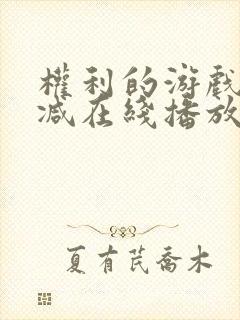 權利的游戲
减在綫播放
夏有芪喬木